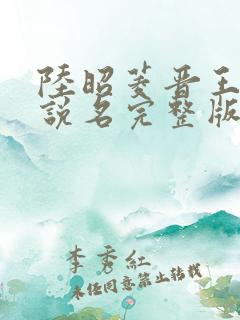 陸昭菱晋王
說名完整版
李秀紅
未任同意禁止转载